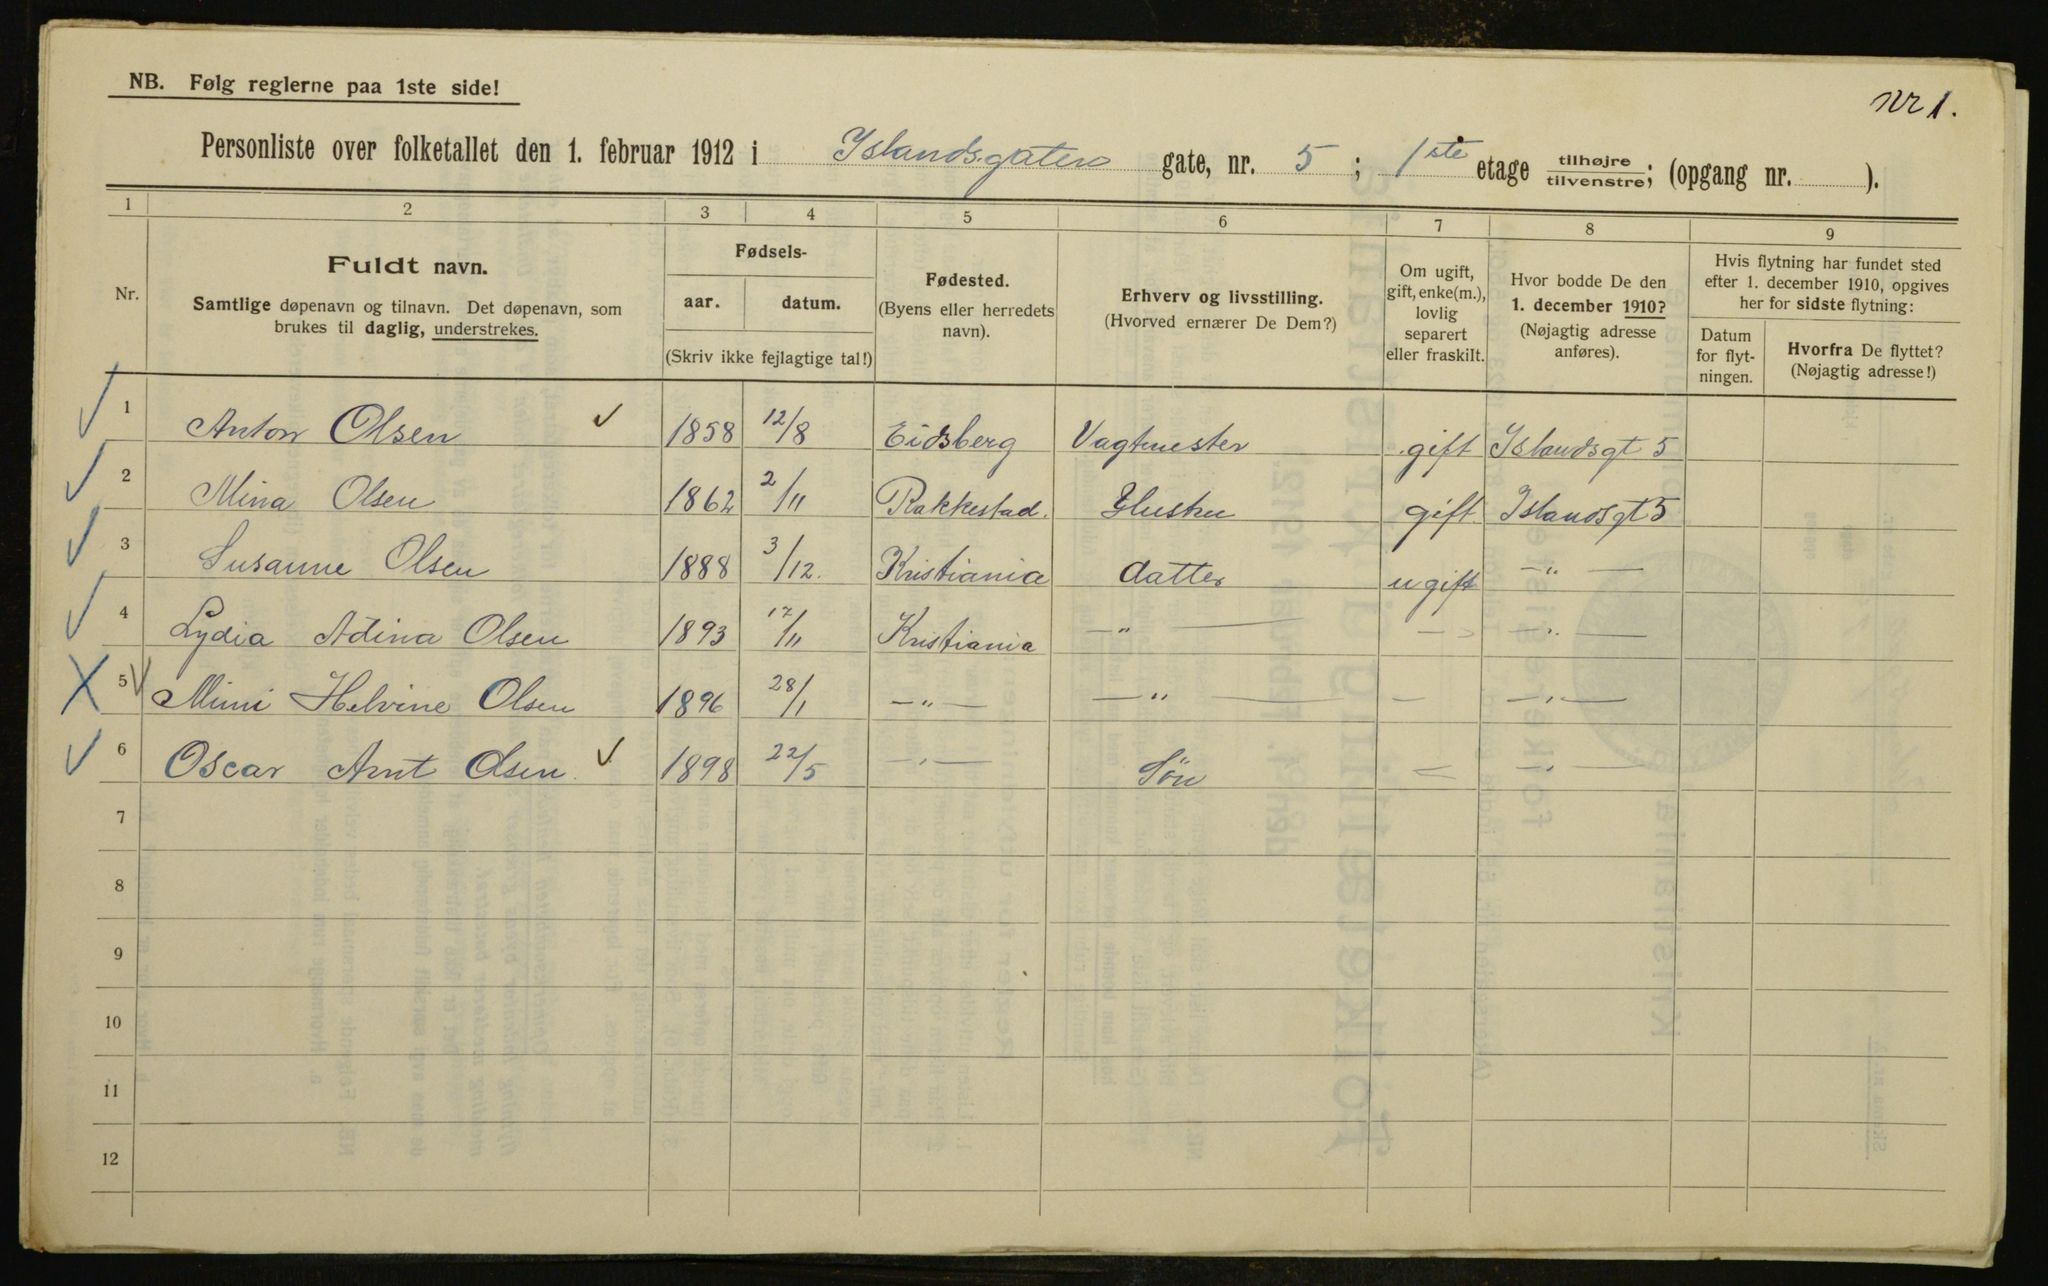 NB. Følg reglerne paa 1ste side!
Nr 1.
Personliste over folketallet den 1. februar 1912 i Islandsgaten gate, nr. 5 ; 1ste etage tilhøjre tilvenstre; (opgang nr. ).
1 2 3 4 5 6 7 8 9
Nr.
Fuldt navn.
Samtlige døpenavn og tilnavn. Det døpenavn, som
brukes til daglig, understrekes.
Fødsels-
aar. datum.
(Skriv ikke fejlagtige tal!)
Fødested.
(Byens eller herredets
navn).
Erhverv og livsstilling.
(Hvorved ernærer De Dem?)
Om ugift,
gift, enke(m.),
lovlig
separert
eller fraskilt.
Hvor bodde De den
1. december 1910?
(Nøjagtig adresse
anføres).
Hvis flytning har fundet sted
efter 1. december 1910, opgives
her for sidste flytning:
Datum
for flyt-
ningen.
Hvorfra De flyttet?
(Nøjagtig adresse!)
1 Anton Olsen ✓ 1858 12/8 Eidsberg Vagtmester gift Islandsgt 5
2 Mina Olsen 1862 2/11 Rakkestad. Hustru gift Islandsgt 5
3 Susanne Olsen 1888 3/12. Kristiania datter ugift —"—
4 Lydia Adina Olsen 1893 17/11 Kristiania —"— — —"—
5 Mimi Helvine Olsen 1896 28/1 —"— —"— — —"—
6 Oscar Arnt Olsen ✓ 1898 22/5 —"— Søn — —"—
7
8
9
10
11
12